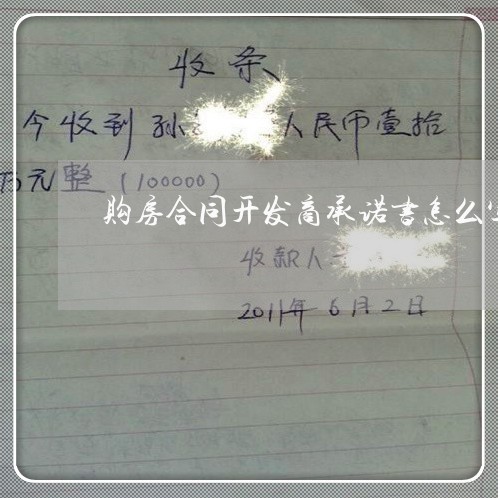 收条
今收到孙 人民币壹拾
万元整（100000）
购房合同开发商承诺书怎么
收款人
2011年6月2日